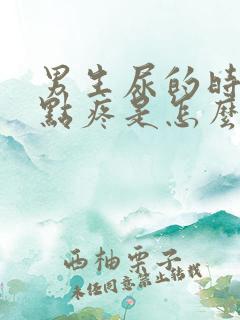 男生尿的時
點疼是怎麼
西柚栗子
未经同意禁止转载